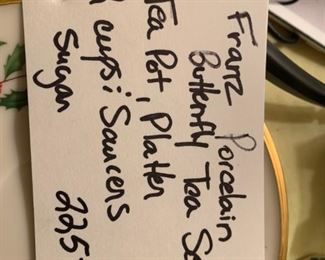 Franz Porcelain
Butterfly Tea Se
Tea Pot, Platter
cups; Saucers
Sugar
225-